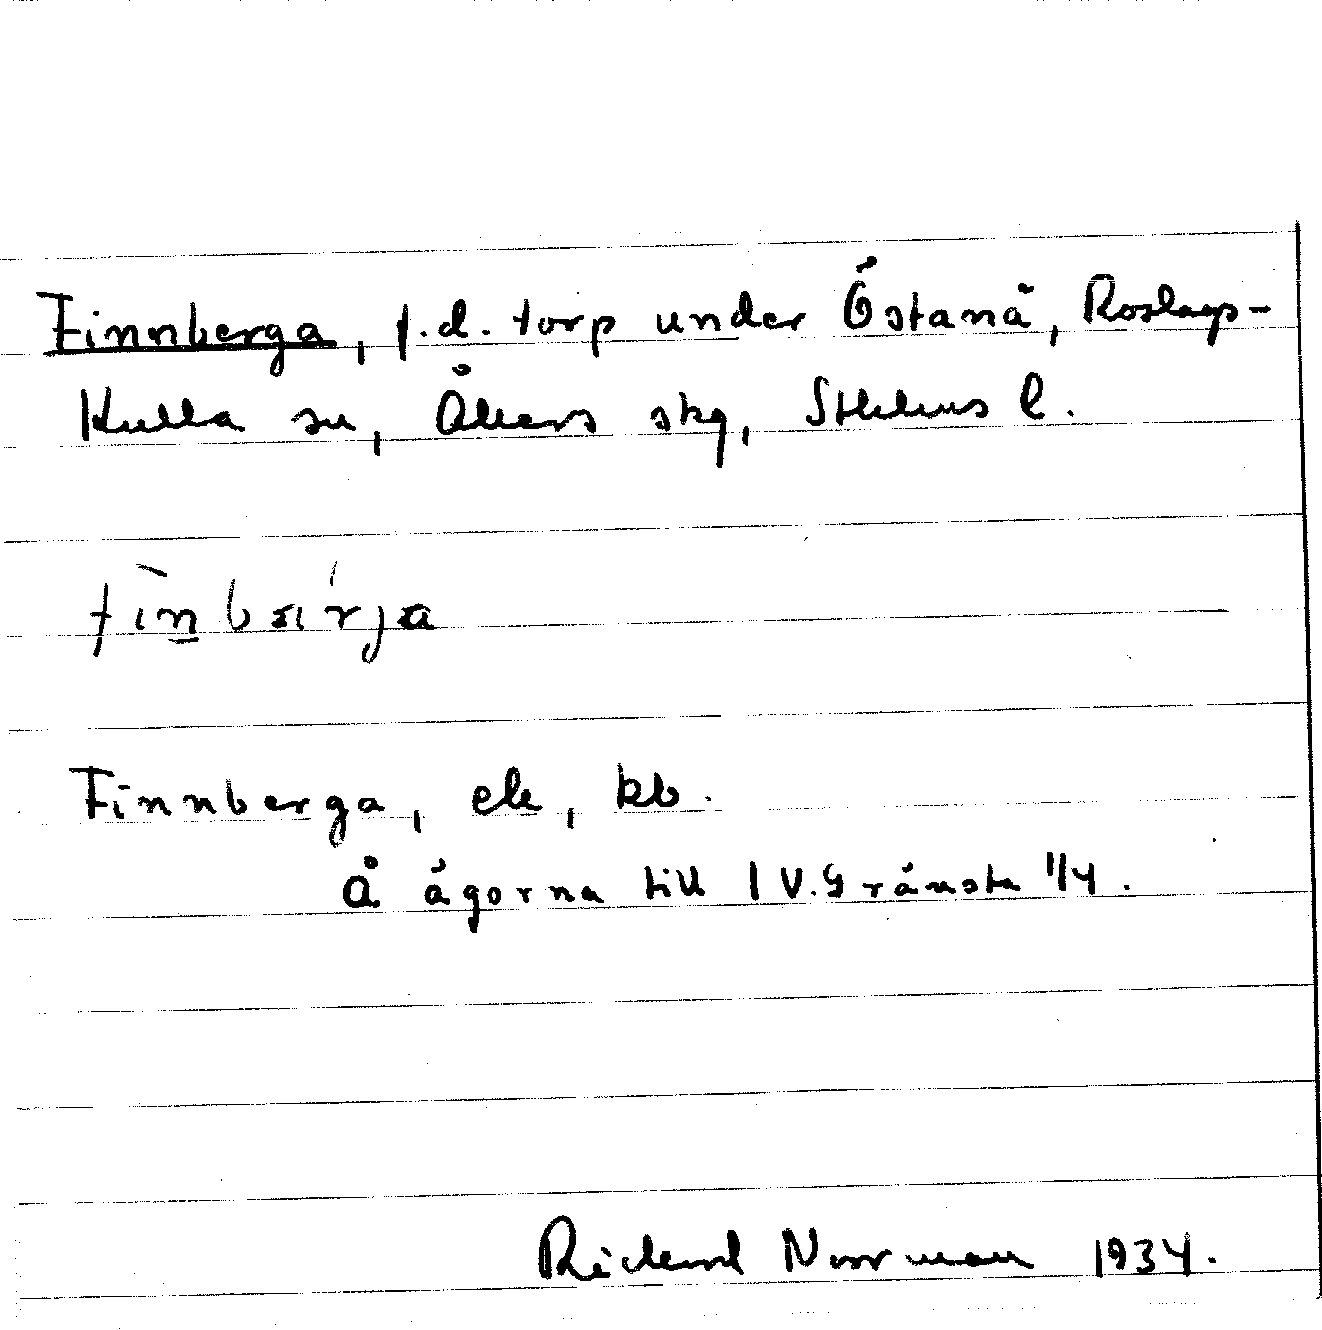 Finnberga, f.d. torp under Östanå, Roslags-
Kulla sn, Åkers skg, Sthlms l.
fìn̲bárja
Finnberga, ek, kb.
Å ägorna till 1 V. Gränsta 1/4.
Rickard Norrman 1934.